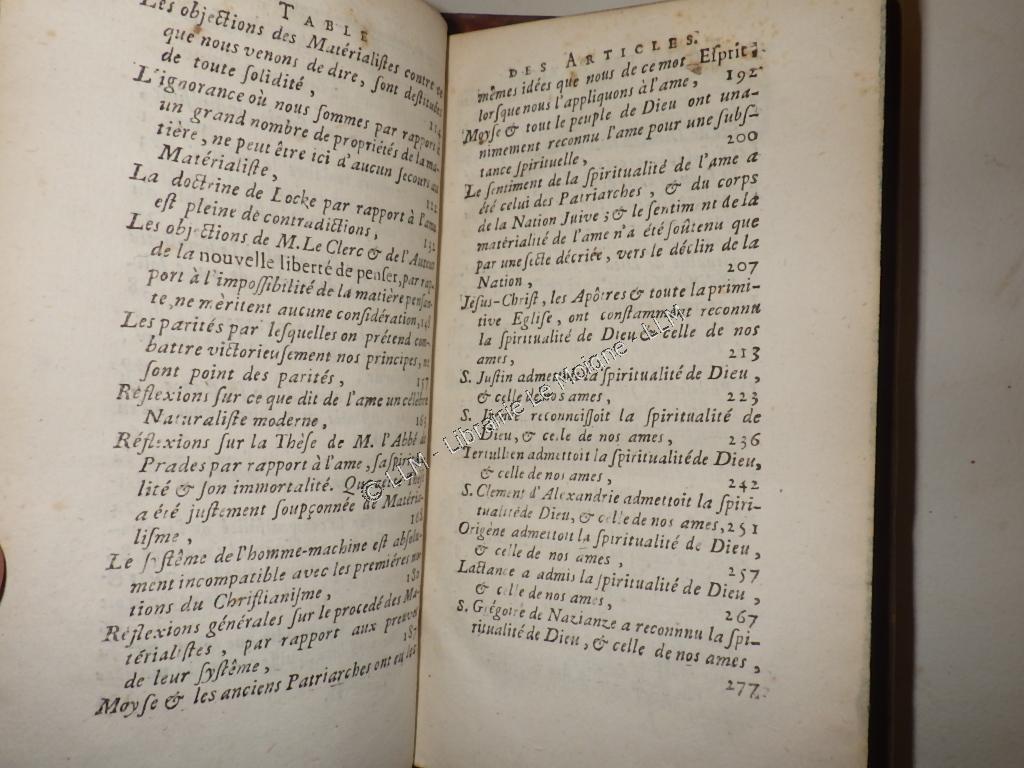 TABLE
Les objections des Matérialistes contre ce
que nous venons de dire, sont destituées
de toute solidité, 114
L'ignorance où nous sommes par rapport à
un grand nombre de propriétés de la ma-
tière, ne peut être ici d'aucun secours au
Matérialiste, 122
La doctrine de Locke par rapport à l'ame
est pleine de contradictions, 132
Les objections de M. Le Clerc & de l'Auteur
de la nouvelle liberté de penser, par rap-
port à l'impossibilité de la matière pensan-
te, ne méritent aucune considération, 148
Les parités par lesquelles on prétend com-
battre victorieusement nos principes, ne
sont point des parités, 157
Réflexions sur ce que dit de l'ame un célèbre
Naturaliste moderne, 163
Réflexions sur la Thèse de M. l'Abbé de
Prades par rapport à l'ame, sa spiritua-
lité & son immortalité. Que cette Thèse
a été justement soupçonnée de Matéria-
lisme, 168
Le systême de l'homme-machine est absolu-
ment incompatible avec les premiéres no-
tions du Christianisme, 182
Réflexions générales sur le procedé des Ma-
térialistes, par rapport aux preuves
de leur systême, 187
Moyse & les anciens Patriarches ont eu les
DES ARTICLES.
mêmes idées que nous de ce mot Esprit;
lorsque nous l'appliquons à l'ame, 192
Moyse & tout le peuple de Dieu ont una-
nimement reconnu l'ame pour une subs-
tance spirituelle, 200
Le sentiment de la spiritualité de l'ame a
été celui des Patriarches, & du corps
de la Nation Juive; & le sentim nt de la
matérialité de l'ame n'a été soûtenu que
par une secte décriée, vers le déclin de la
Nation, 207
Jésus-Christ, les Apôtres & toute la primi-
tive Eglise, ont constamment reconnu
la spiritualité de Dieu & celle de nos
ames, 213
S. Justin admettoit la spiritualité de Dieu,
& celle de nos ames, 223
S. Irénée reconnoissoit la spiritualité de
Dieu, & celle de nos ames, 236
Tertullien admettoit la spiritualité de Dieu,
& celle de nos ames, 242
S. Clement d'Alexandrie admettoit la spiri-
tualité de Dieu, & celle de nos ames, 251
Origène admettoit la spiritualité de Dieu,
& celle de nos ames, 257
Lactance a admis la spiritualité de Dieu,
& celle de nos ames, 267
S. Grégoire de Nazianze a reconnnu la spi-
ritualité de Dieu, & celle de nos ames,
277
© LLM - Librairie Le Moigne - LLM